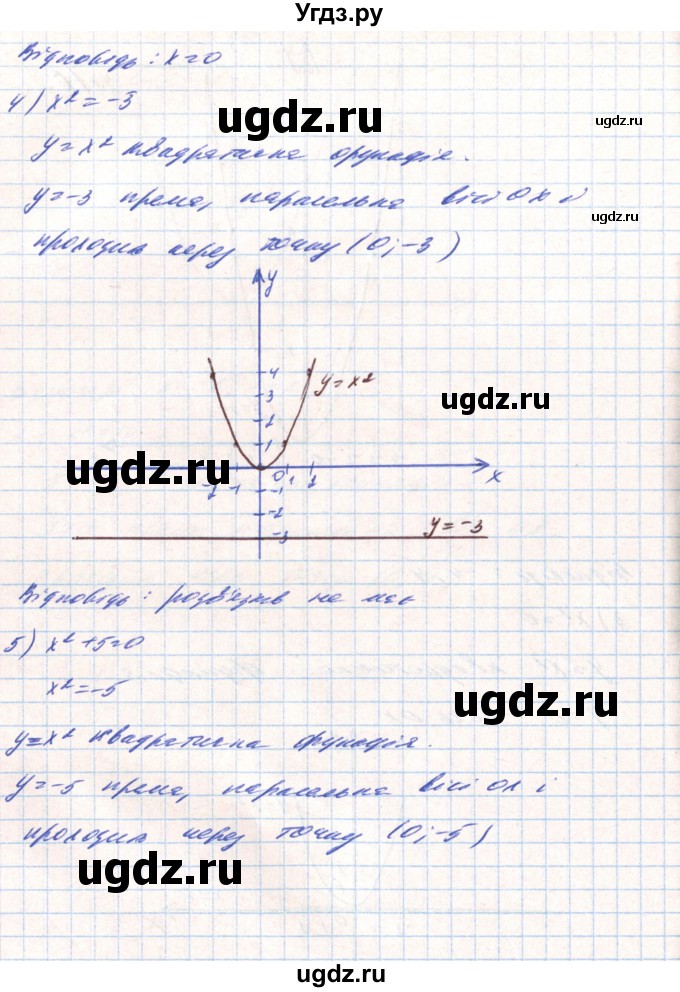 Угдз.ру
Відповідь: x=0
ugdz.ru
4) x²=-3
ugdz.ru
y=x² квадратична функція.
y=-3 пряма, паралельна вісі OX і
ugdz.ru
проходить через точку (0;-3)
y
4
y=x²
3
ugdz.ru
2
1
ugdz.ru
-2 -1 0 1 2 x
-1
-2
y=-3
-3
Відповідь: розв'язків не має
5) x²+5=0
x²=-5
ugdz.ru
y=x² квадратична функція.
y=-5 пряма, паралельна вісі OX і
проходить через точку (0;-5)
ugdz.ru
ugdz.ru